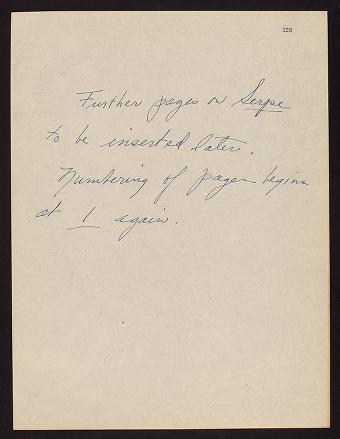 128
Further pages on Serpe
to be inserted later.
Numbering of pages begins
at 1 again.